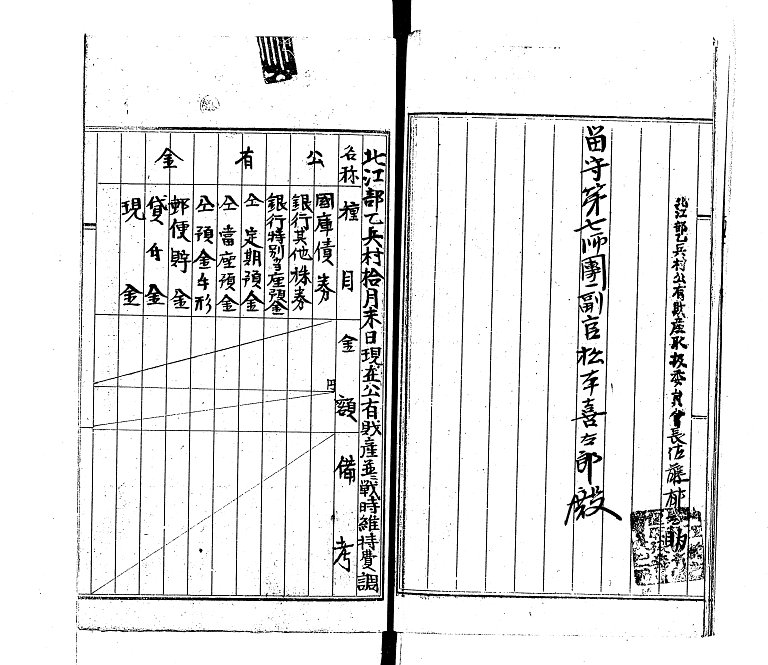 北江部乙兵村公有財産取扱委員會長佐藤郁助
留守第七師團副官松本喜太郎殿
北江部乙兵村拾月末日現在公有財産並戰時維持費調
名称 種目 金額 備考
公有金
國庫債券 円
銀行其他株券
銀行特別当座預金
仝定期預金
仝當座預金
仝預金手形
郵便貯金
貸付金
現金